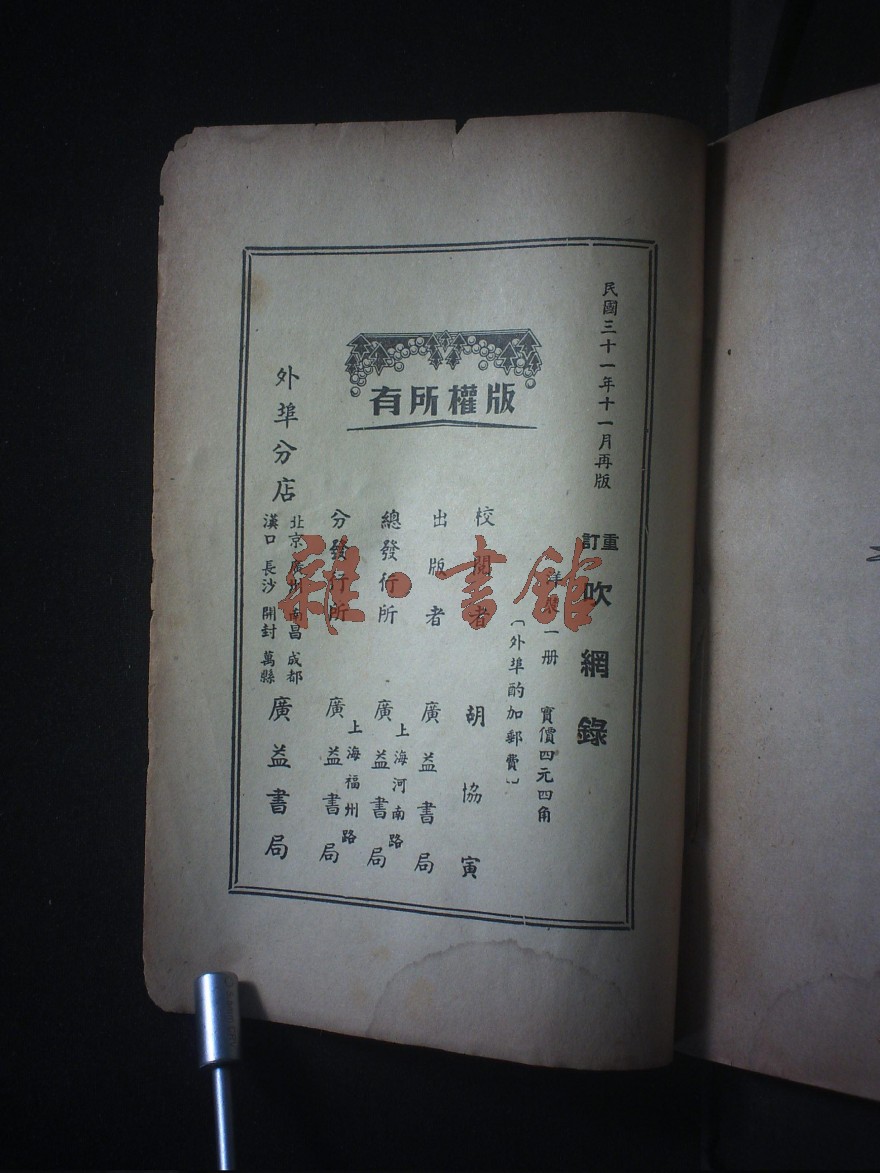 民國三十一年十一月再版
重訂 吹網錄
洋裝一册 實價四元四角
〔外埠酌加郵費〕
版權所有
校閱者 胡協寅
出版者 廣益書局
總發行所 上海河南路 廣益書局
分發行所 上海福州路 廣益書局
外埠分店 北京 廣州 南昌 成都 漢口 長沙 開封 萬縣 廣益書局
雜·書館